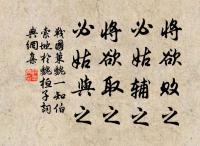 將欲敗之
必姑輔之
將欲取之
必姑與之
戰國策魏一知伯
索地於魏桓子詞
典網集